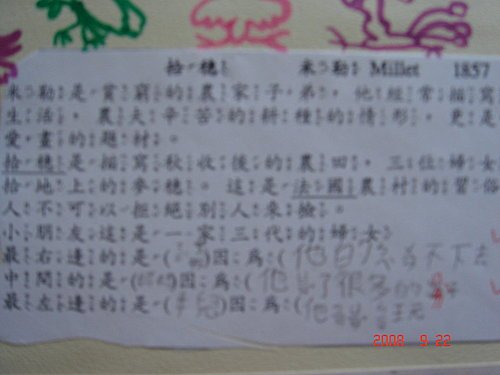 拾穗 米勒 Millet 1857
米勒是貧窮的農家子弟。他經常描寫
生活。農夫辛苦的耕種的情形，更是
愛畫的題材。
拾穗是描寫秋收後的農田。三位婦女
拾地上的麥穗。這是法國農村的習俗
人不可以拒絕別人來撿。
小朋友這是一家三代的婦女
最右邊的是( )因為(他
中間的是( )因為(他 了很多的
最左邊的是( )因為(他
2008 9.22